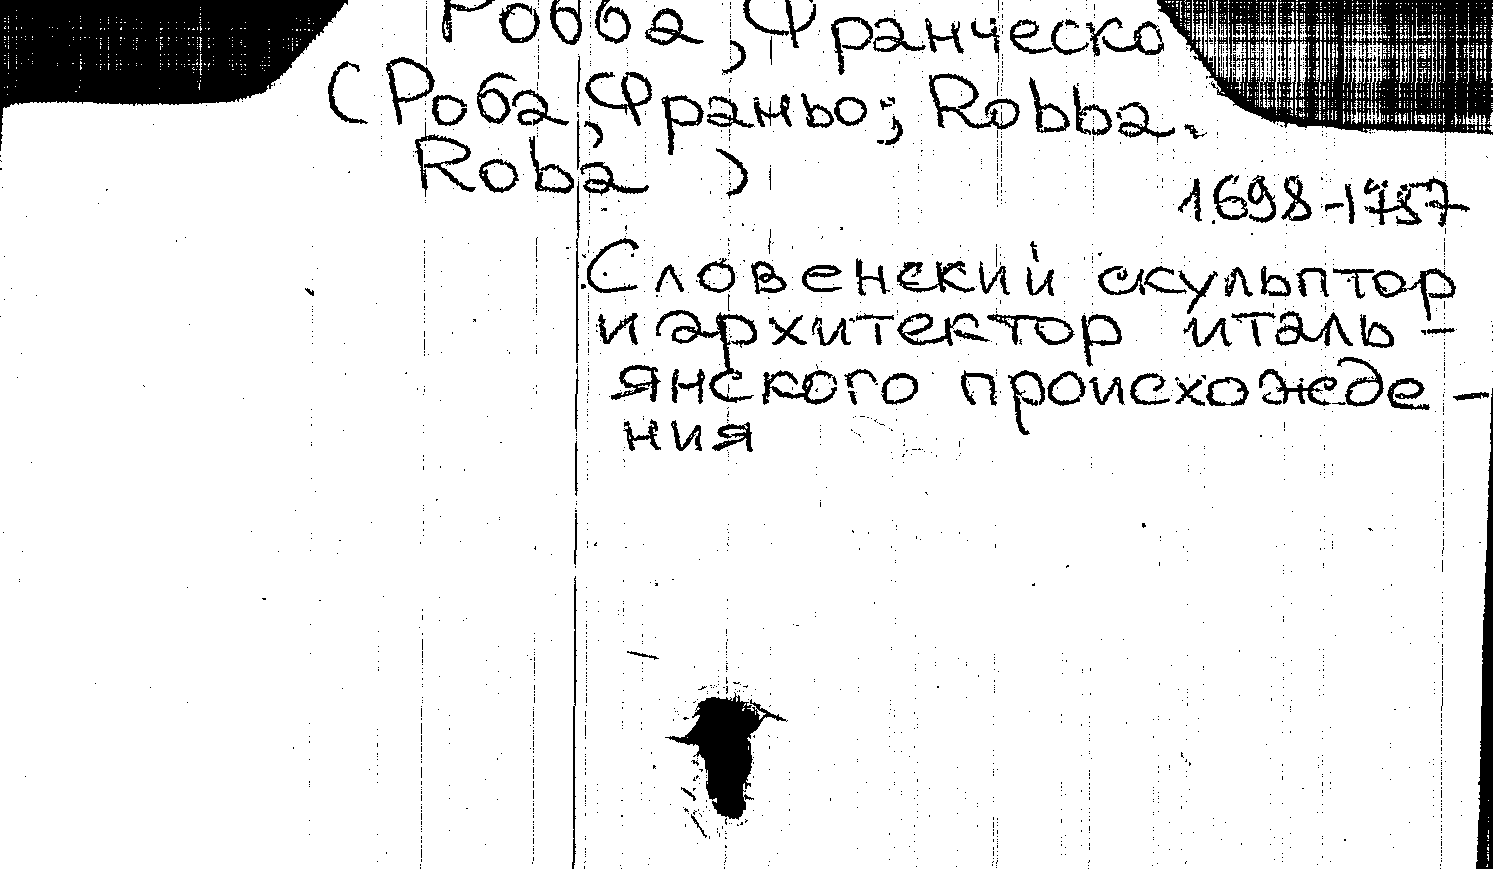 Робба, Франческо
(Роба, Франьо; Robba.
Roba )
1698-1757
Словенский скульптор
и архитектор италь-
янского происхожде-
ния